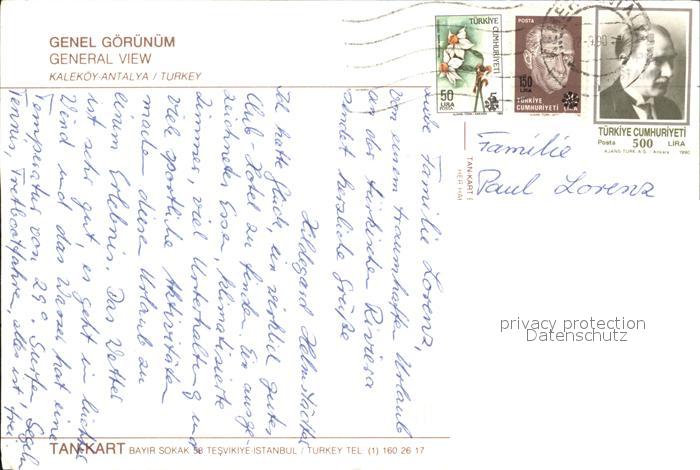 GENEL GÖRÜNÜM
GENERAL VIEW
KALEKÖY-ANTALYA / TURKEY
TÜRKİYE CUMHURİYETİ
50
LIRA
5
POSTA
150
LIRA
TÜRKİYE
CUMHURİYETİ
TÜRKİYE CUMHURİYETİ
Posta 500 LİRA
AJANS TÜRK A.Ş. - Ankara 1990
TAN-KART
HER HAK
Familie
Paul Lorenz
Liebe Familie Lorenz,
von einem traumhaften Urlaub
an der türkischen Riviera
sendet herzliche Grüße
Hildegard
Ich hatte Glück, ein wirklich gutes
Club-Hotel zu finden. Ein ausge-
zeichnetes Essen, klimatisierte
Zimmer, viel Unterhaltung und
viele sportliche Aktivitäten
machen diesen Urlaub zu
einem Erlebnis. Das Wetter
ist sehr gut, es geht ein leichter
Wind und das Wasser hat eine
Temperatur von 29°. Surfen, Segeln
Tennis, Tretbootfahren, alles ist frei
privacy protection
Datenschutz
TAN-KART BAYIR SOKAK 58 TEŞVİKİYE-İSTANBUL / TURKEY TEL (1) 160 26 17